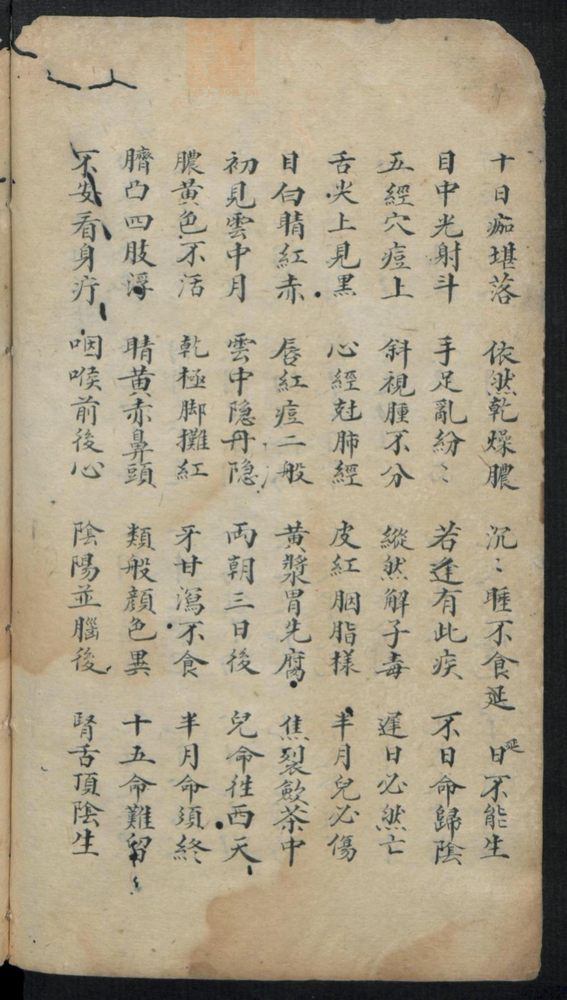 十日痂堪落 依然乾燥膿 沉〻睡不食延 延日不能生
目中光射斗 手足亂紛〻 若逢有此疾 不日命歸陰
五經穴痘上 斜視腫不分 縱然解子毒 遲日必然亡
舌尖上見黑 心經尅肺經 皮紅胭脂樣 半月兒必傷
目白睛紅赤 唇紅痘二般 黃漿胃先腐 焦裂飲茶中
初見雲中月 雲中隐丹隐 兩朝三日後 兒命往西天
膿黃色不活 乾極脚攤紅 牙甘瀉不食 半月命須終
臍凸四肢浮 睛黃赤鼻頭 類般顏色異 十五命難留
不安看身疔 咽喉前後心 陰陽並腦後 腎舌頂陰生